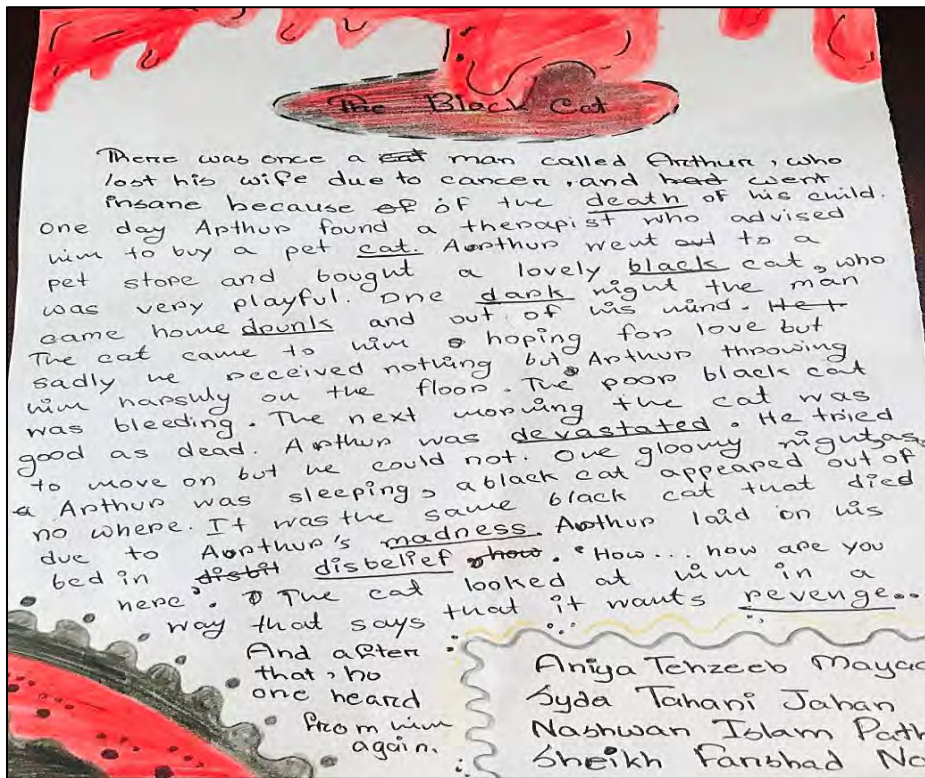 The Black Cat
There was once a cat man called Arthur, who
lost his wife due to cancer, and had went
insane because of of the death of his child.
One day Arthur found a therapist who advised
him to buy a pet cat. Aorthur went out to a
pet store and bought a lovely black cat, who
was very playful. One dark night the man
came home drunk and out of his mind. He t
The cat came to him hoping for love but
sadly he received nothing but Arthur throwing
him harshly on the floor. The poor black cat
was bleeding. The next morning the cat was
good as dead. Arthur was devastated. He tried
to move on but he could not. One gloomy night, as
a Arthur was sleeping, a black cat appeared out of
no where. It was the same black cat that died
due to Aorthur's madness. Arthur laid on his
bed in disbil disbelief how. "How... how are you
here". The cat looked at him in a
way that says that it wants revenge...
And after
that, no
one heard
from him
again.
Aniya Tehzeeb Mayac
Syda Tahani Jahan
Nashwan Islam Path
Sheikh Farshad No